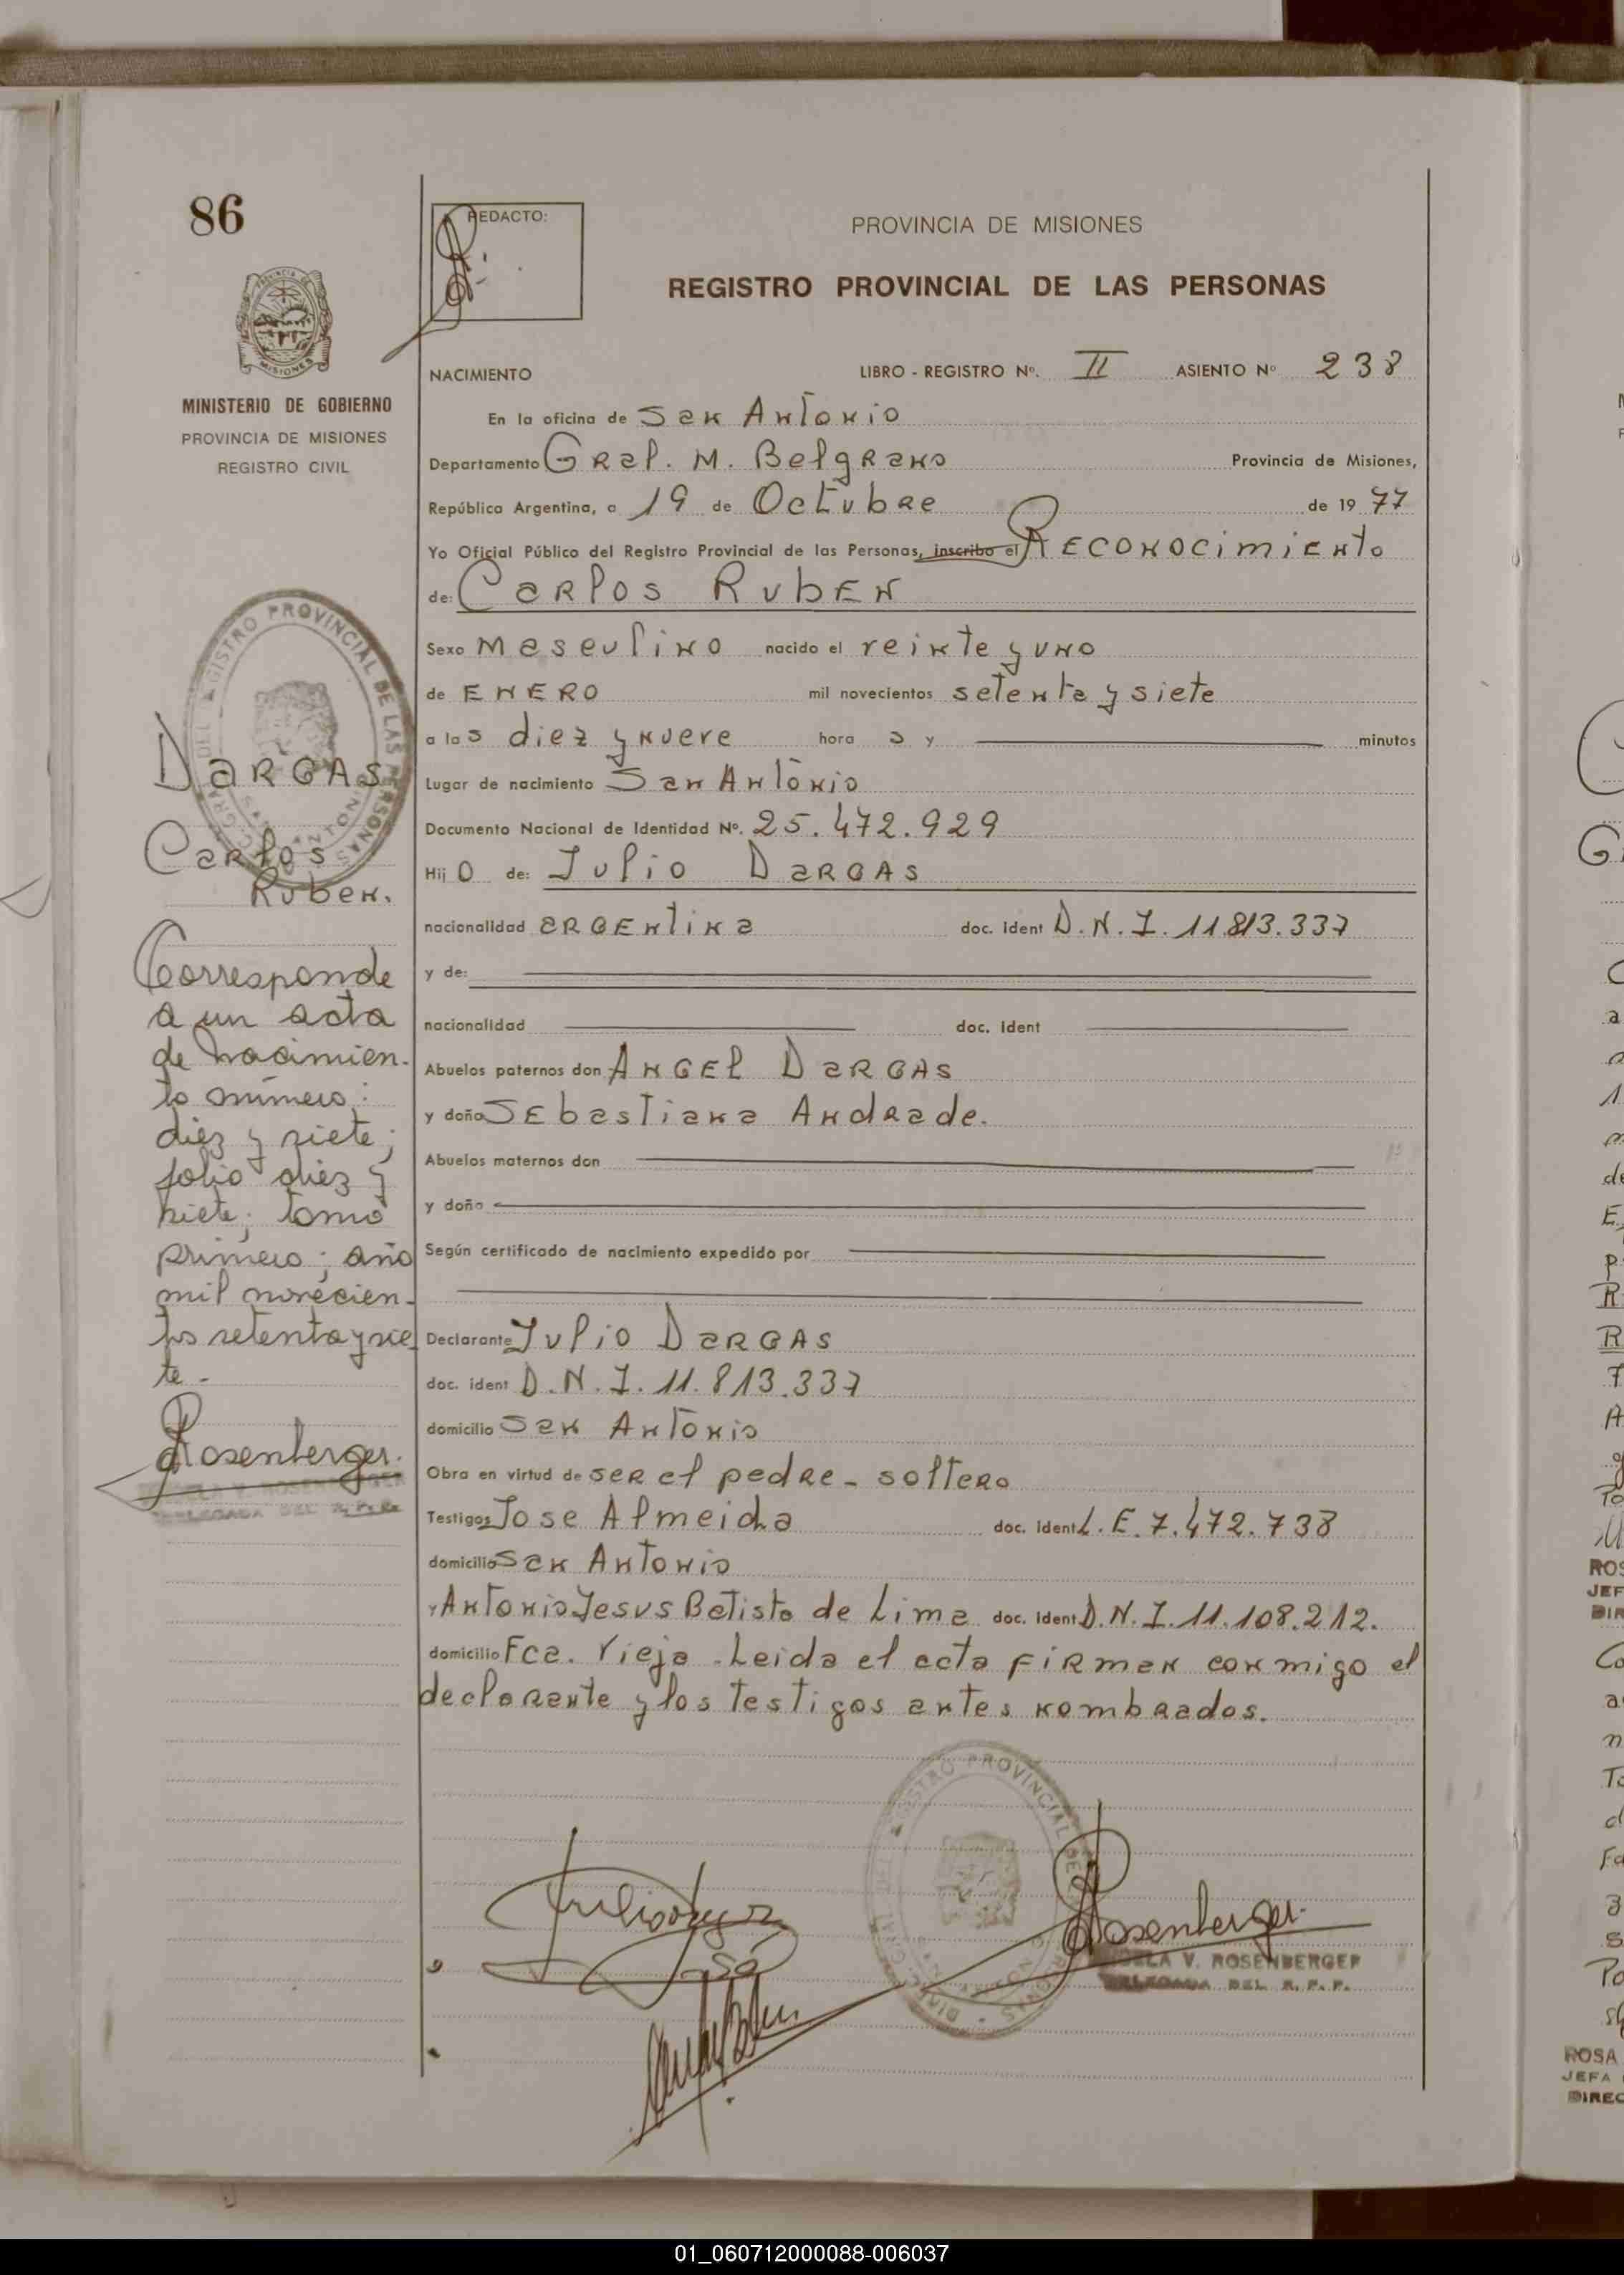 86
REDACTO:
PROVINCIA DE MISIONES
REGISTRO PROVINCIAL DE LAS PERSONAS
MINISTERIO DE GOBIERNO
PROVINCIA DE MISIONES
REGISTRO CIVIL
NACIMIENTO LIBRO - REGISTRO Nº. II ASIENTO Nº 238
En la oficina de San Antonio
Departamento Gral. M. Belgrano Provincia de Misiones,
República Argentina, a 19 de Octubre de 1977
Yo Oficial Público del Registro Provincial de las Personas, inscribo el Reconocimiento
de: Carlos Ruben
Sexo masculino nacido el veinte y uno
de ENERO mil novecientos setenta y siete
a las diez y nueve horas y minutos
Lugar de nacimiento San Antonio
Documento Nacional de Identidad Nº. 25.472.929
Hijo de: Julio Dargas
nacionalidad argentina doc. ident D.N.I. 11.813.337
y de:
nacionalidad doc. ident
Abuelos paternos don Angel Dargas
y doña Sebastiana Andrade.
Abuelos maternos don
y doña
Según certificado de nacimiento expedido por
Declarante Julio Dargas
doc. ident D.N.I. 11.813.337
domicilio San Antonio
Obra en virtud de ser el padre - soltero
Testigos Jose Almeida doc. ident L.E. 7.472.738
domicilio San Antonio
y Antonio Jesus Batista de Lima doc. ident D.N.I. 11.108.212.
domicilio Fca. Vieja - Leida el acta firman conmigo el
declarante y los testigos antes nombrados.
Dargas
Carlos
Ruben.
Corresponde
a un acta
de nacimien-
to número:
diez y siete;
folio diez y
siete; tomo
primero; año
mil novecien-
tos setenta y sie
te -
Rosenberger.
V. ROSENBERGER
DELEGADA DEL R. P. P.
REGISTRO PROVINCIAL DE LAS PERSONAS
Rosenberger.
V. ROSENBERGER
DELEGADA DEL R. P. P.
01_060712000088-006037